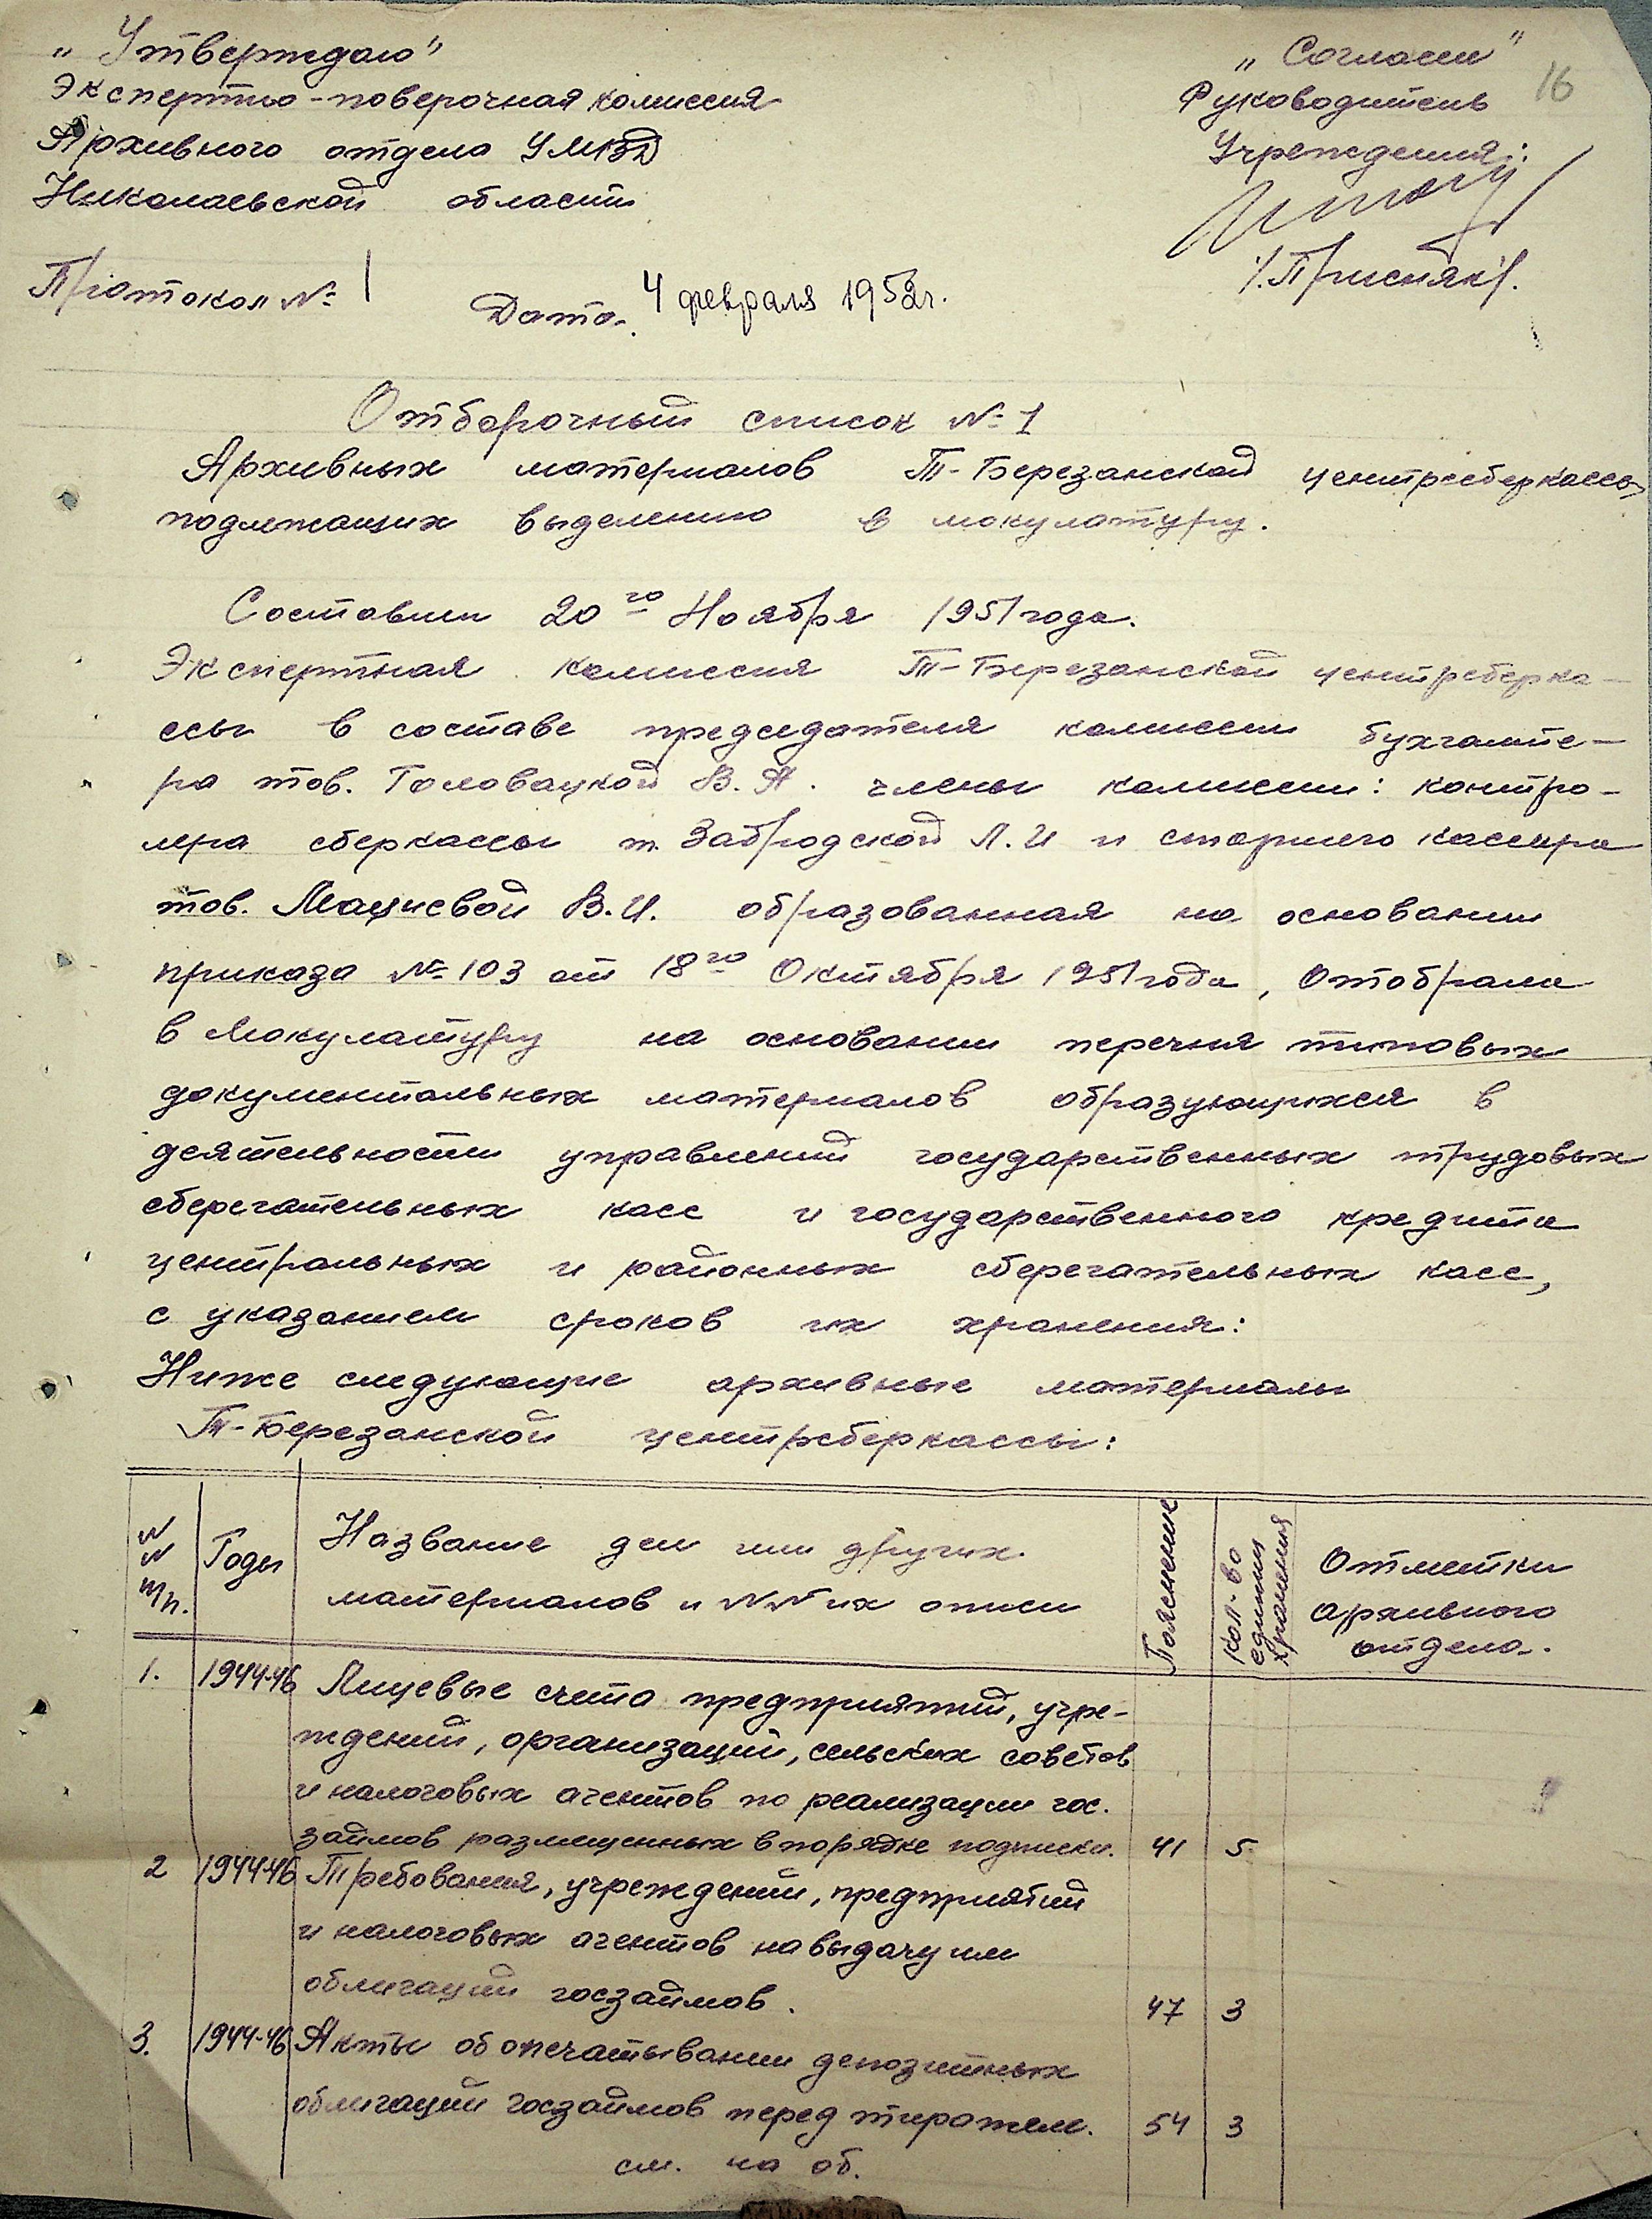 „Утверждаю"
Экспертно-поверочная комиссия
Архивного отдела УМВД
Николаевской области
„Согласен"
16
Руководитель
Учреждения:
/.Присняк/.
Протокол № 1
Дата. 4 февраля 1952г.
Отборочный список № 1
Архивных материалов Т-Березанской центрсберкассы,
подлежащих выделению в мокулатуру.
Составлен 20го Ноября 1951 года.
Экспертная комиссия Т-Березанской центрсберка-
ссы в составе председателя комиссии бухгалте-
ра тов. Головацкой В.А. члены комиссии: контро-
лера сберкассы т. Забродской Л.И и старшего кассира
тов. Мациевой В.И. образованная на основании
приказа № 103 от 18го Октября 1951 года, Отобрала
в Мокулатуру на основании перечня типовых
документальных материалов образующихся в
деятельности управлений государственных трудовых
сберегательных касс и государственного кредита
центральных и районных сберегательных касс,
с указанием сроков их хранения:
Ниже следующие архивные материалы
Т-Березанской центрсберкассы:
№ № п/п.
Годы
Название дел или других
материалов и №№ их описи
Пояснение
Кол-во единиц хранения
Отметки
архивного
отдела.
1. 1944-46 Лицевые счета предприятий, учре-
ждений, организаций, сельских советов
и налоговых агентов по реализации гос.
займов размещенных в порядке подписки. 41 5
2 1944-46 Требования, учреждений, предприятий
и налоговых агентов на выдачу им
облигаций госзаймов. 47 3
3. 1944-46 Акты об опечатывании депозитных
облигаций госзаймов перед тиражем. 54 3
см. на об.